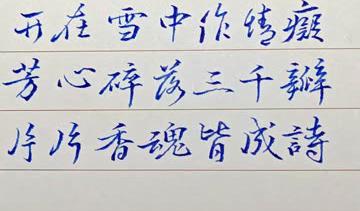 开在雪中作情癡
芳心碎落三千瓣
片片香魂皆成詩